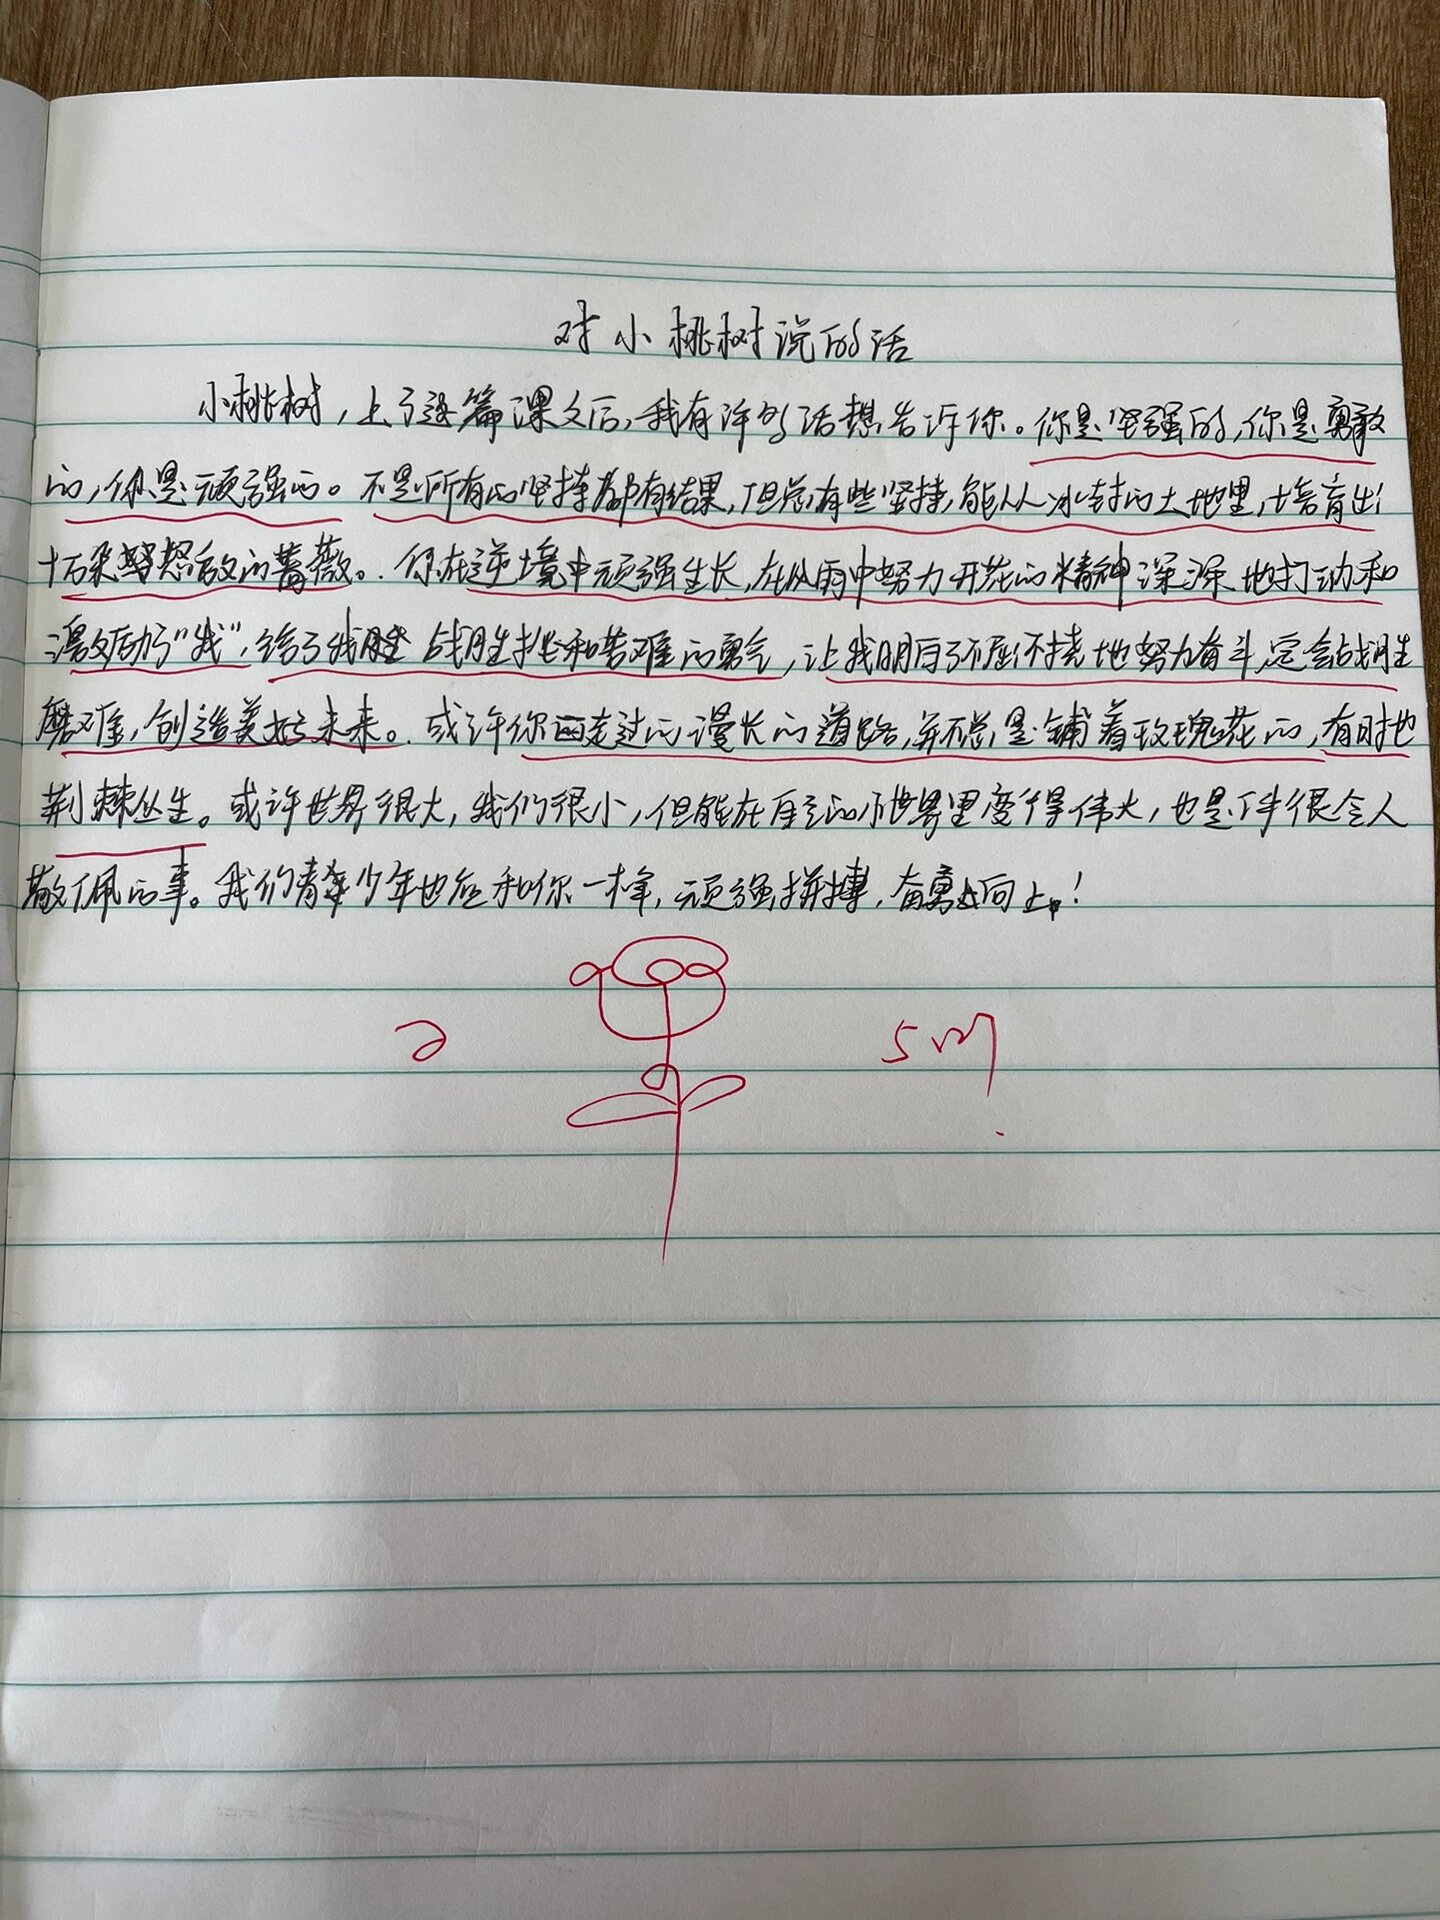 对小桃树说的话
小桃树，上了这篇课文后，我有许多话想告诉你。你是坚强的，你是勇敢
的，你是顽强的。不是所有的坚持都有结果，但总有些坚持，能从冰封的土地里，培育出
十万朵怒放的蔷薇。你在逆境中顽强生长，在风雨中努力开花的精神深深地打动和
激励了“我”，给了我战胜挫和苦难的勇气，让我明白了不屈不挠地努力奋斗，定会战胜
磨难，创造美好未来。或许你走过的漫长的道路，并不总是铺着玫瑰花的，有时也
荆棘丛生。或许世界很大，我们很小，但能在自己的小世界里变得伟大，也是件很令人
敬佩的事。我们青少年也应和你一样，顽强拼搏，奋勇向上！